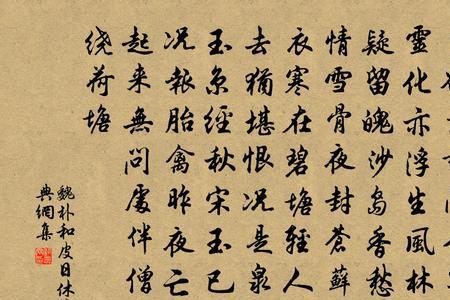 靈化亦浮生風林
疑留魄沙島香愁
情雪骨夜封蒼蘚
衣寒在碧塘輕人
去猶堪恨况是泉
玉京經秋宋玉已
况報胎禽昨夜亡
起來無問處伴僧
绕荷塘
魏朴和皮日休
典網集